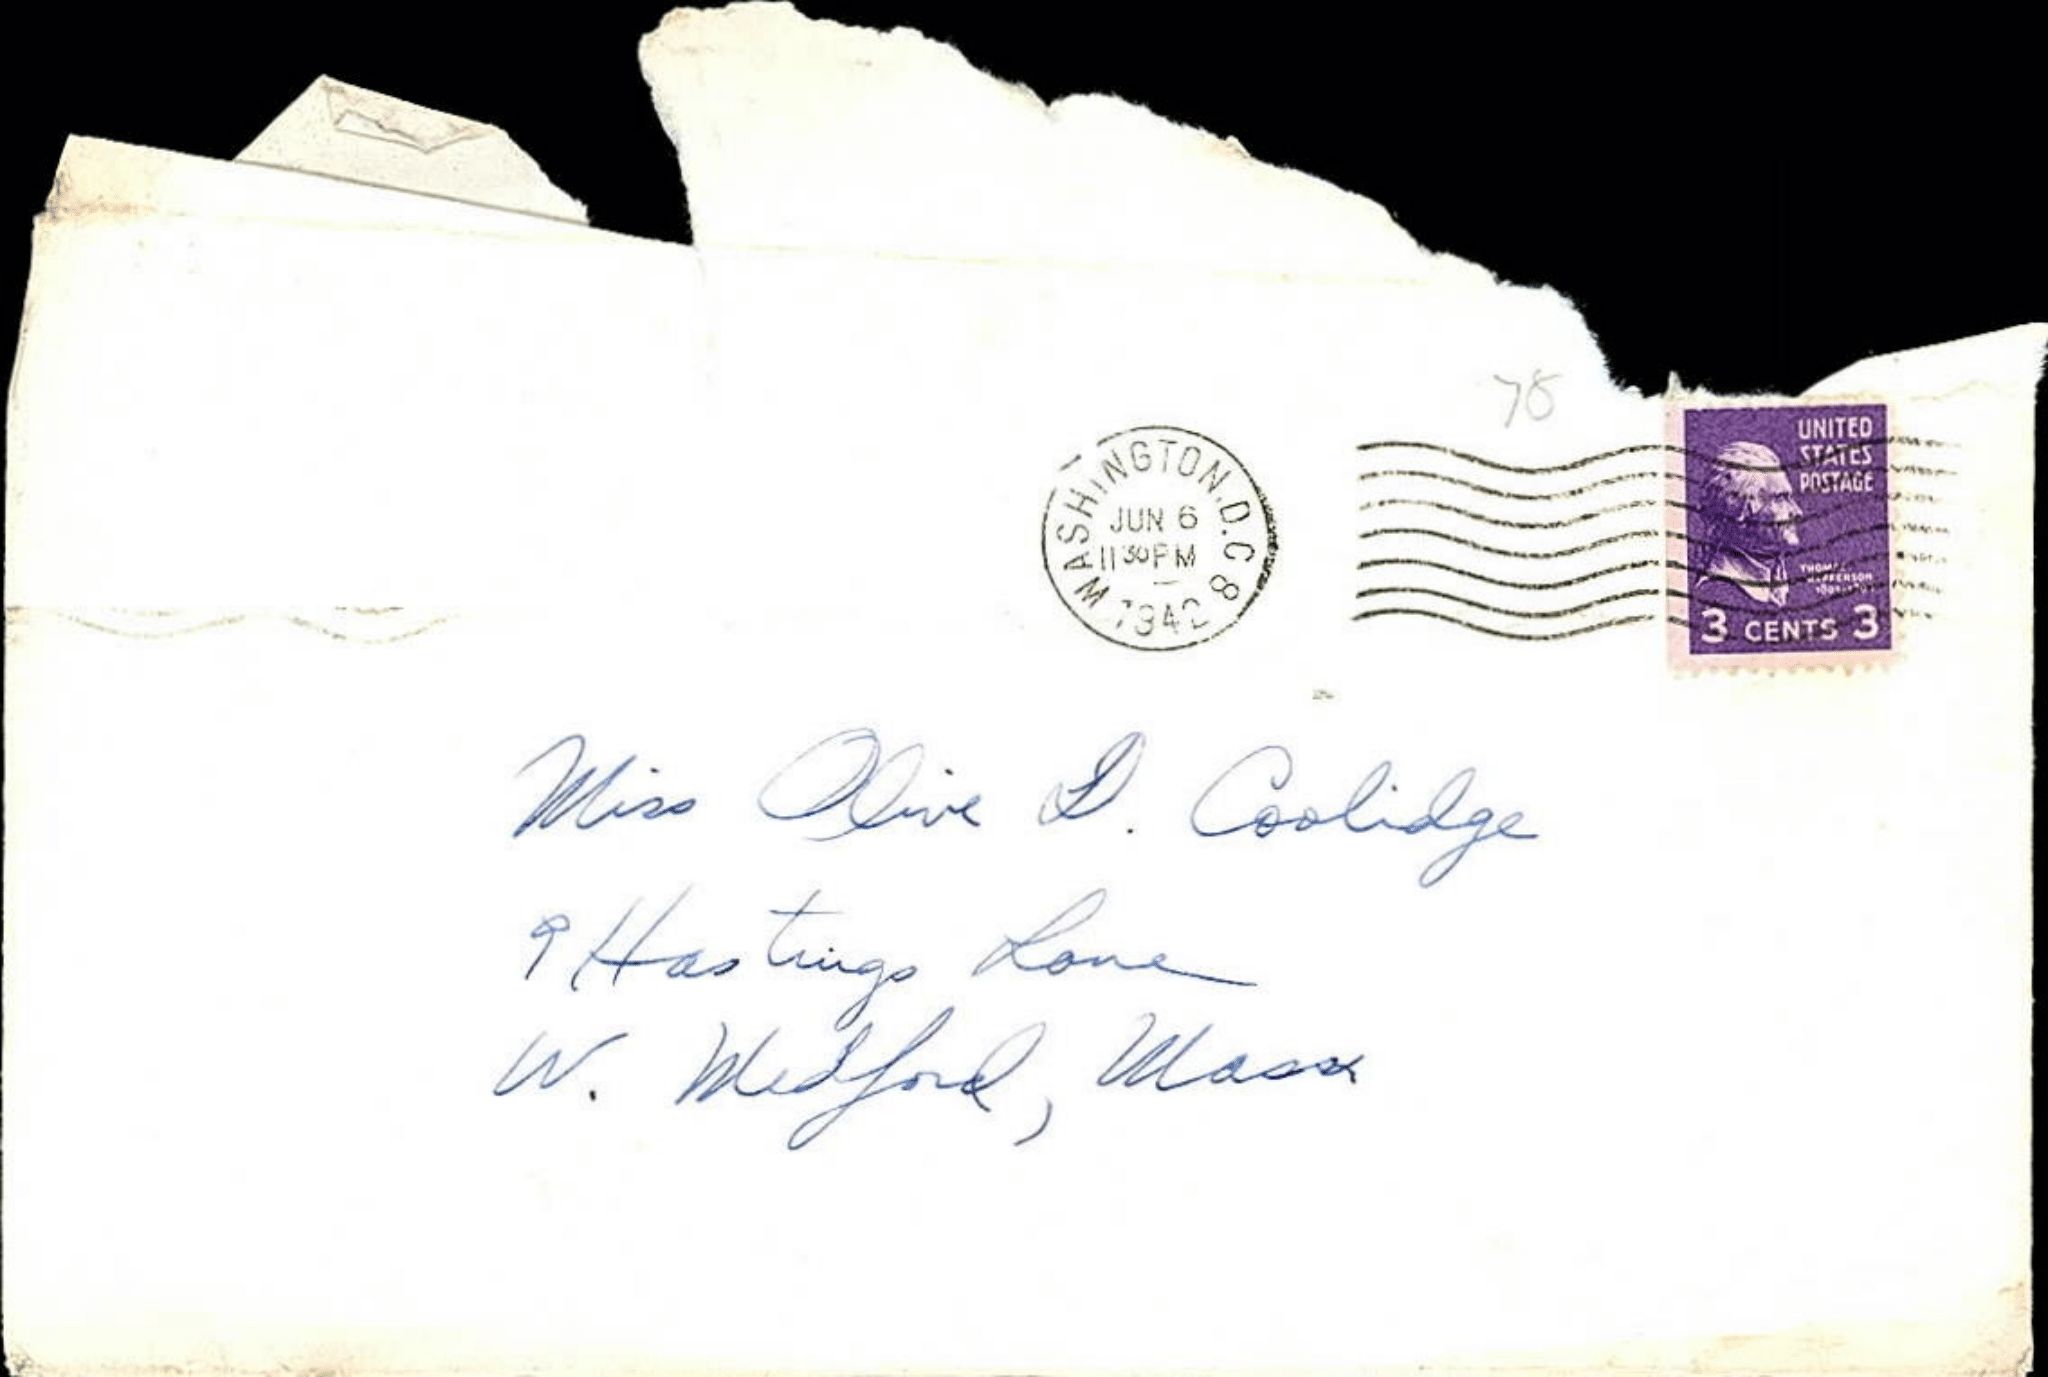 78
WASHINGTON, D.C. 8
JUN 6
11 30 PM
1942
UNITED
STATES
POSTAGE
THOMAS
JEFFERSON
3 CENTS 3
Miss Olive D. Coolidge
9 Hastings Lane
W. Medford, Mass